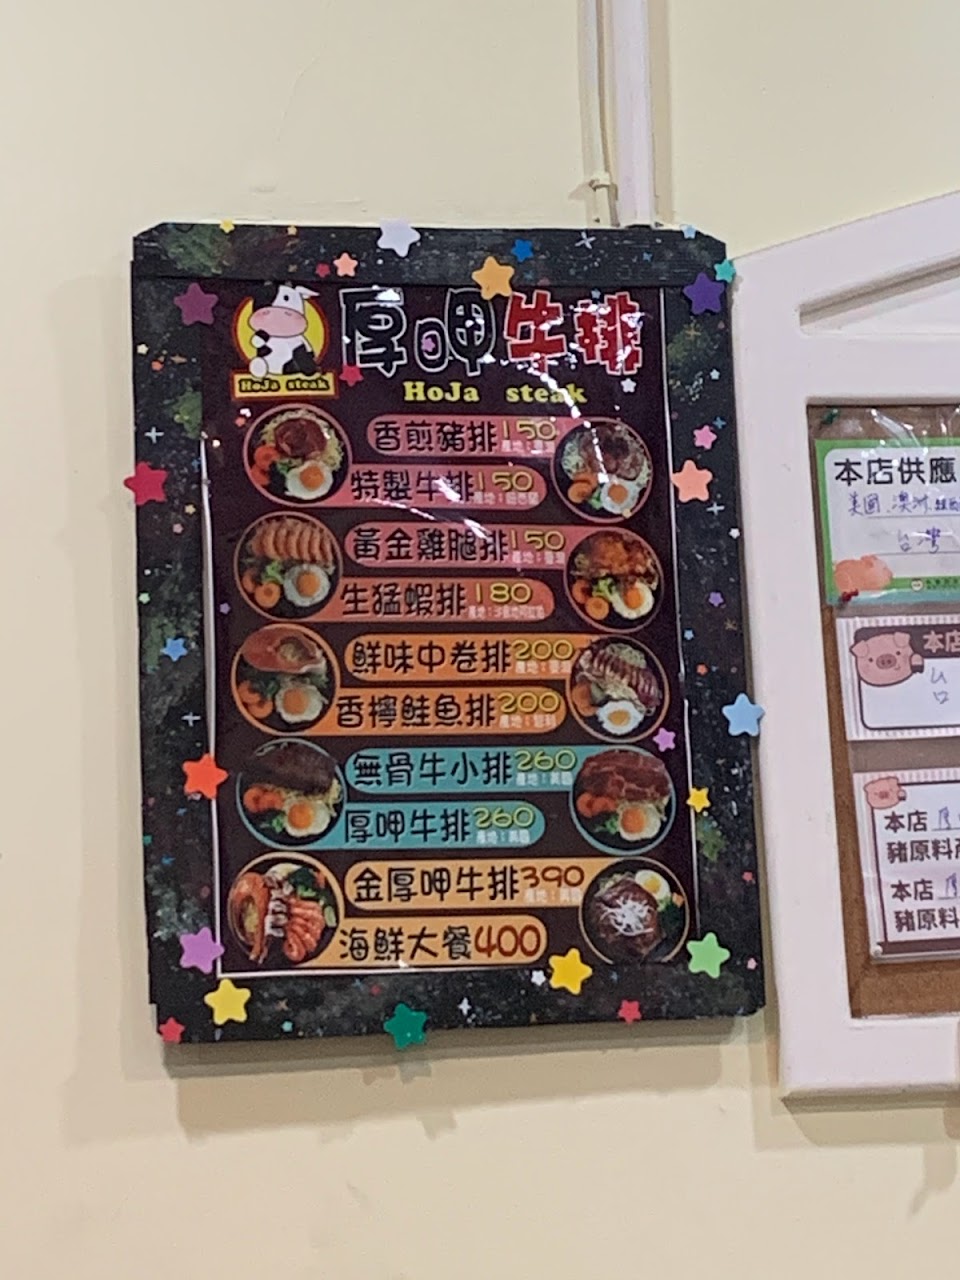 厚呷牛排
HoJa steak
HoJa steak
香煎豬排150
特製牛排150
產地：紐西蘭
黃金雞腿排150
生猛蝦排180
鮮味中卷排200
香檸鮭魚排200
無骨牛小排260
產地：美國
厚呷牛排260
產地：美國
金厚呷牛排390
產地：美國
海鮮大餐400
本店供應
美國.澳洲.
台灣
本店
本店
豬原料
本店
豬原料